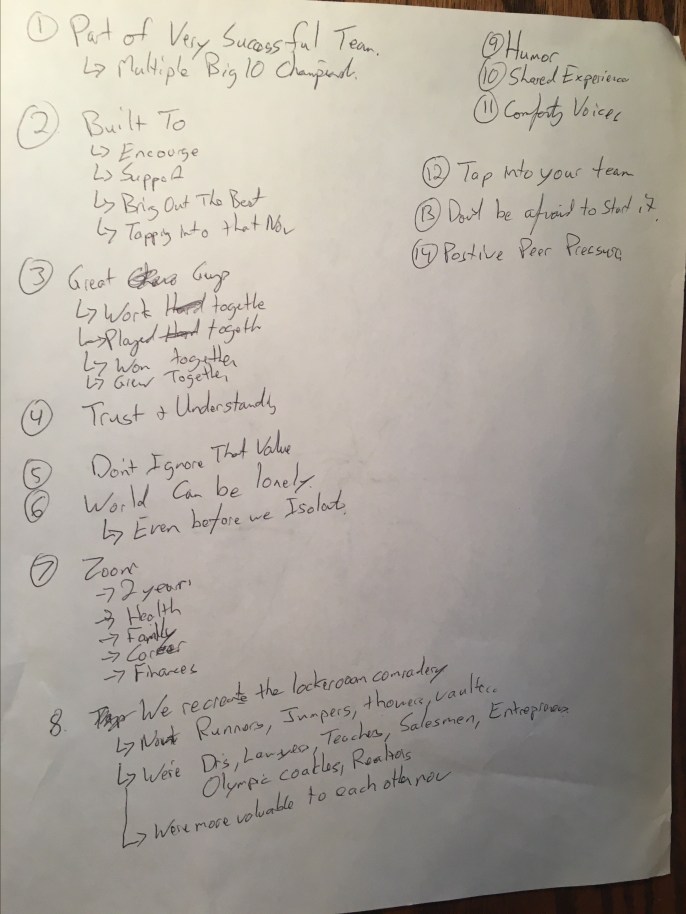 ① Part of Very Successful Team.
↳ Multiple Big 10 Champions.
② Built To
↳ Encourge
↳ Support
↳ Bring Out The Best
↳ Tapping Into that Now
③ Great Guys
↳ Work Hard togethe
↳ Played Hard togeth
↳ Won together
↳ Grew Together
④ Trust & Understandg
⑤ Don't Ignore That Value
⑥ World Can be lonely.
↳ Even before we Isolat.
⑦ Zoom
→ 2 years
→ Health
→ Family
→ Career
→ Finances
8. We recreate the lockeroom comradery
↳ Not Runners, Jumpers, throwers, vaulters
↳ We're Drs, Lawyers, Teachers, Salesmen, Entrepreneurs
Olympic coaches, Realtors
↳ We're more valuable to each other now
⑨ Humor
⑩ Shared Experience
⑪ Comforty Voices
⑫ Tap into your team
⑬ Don't be afraid to start it.
⑭ Positive Peer Pressure